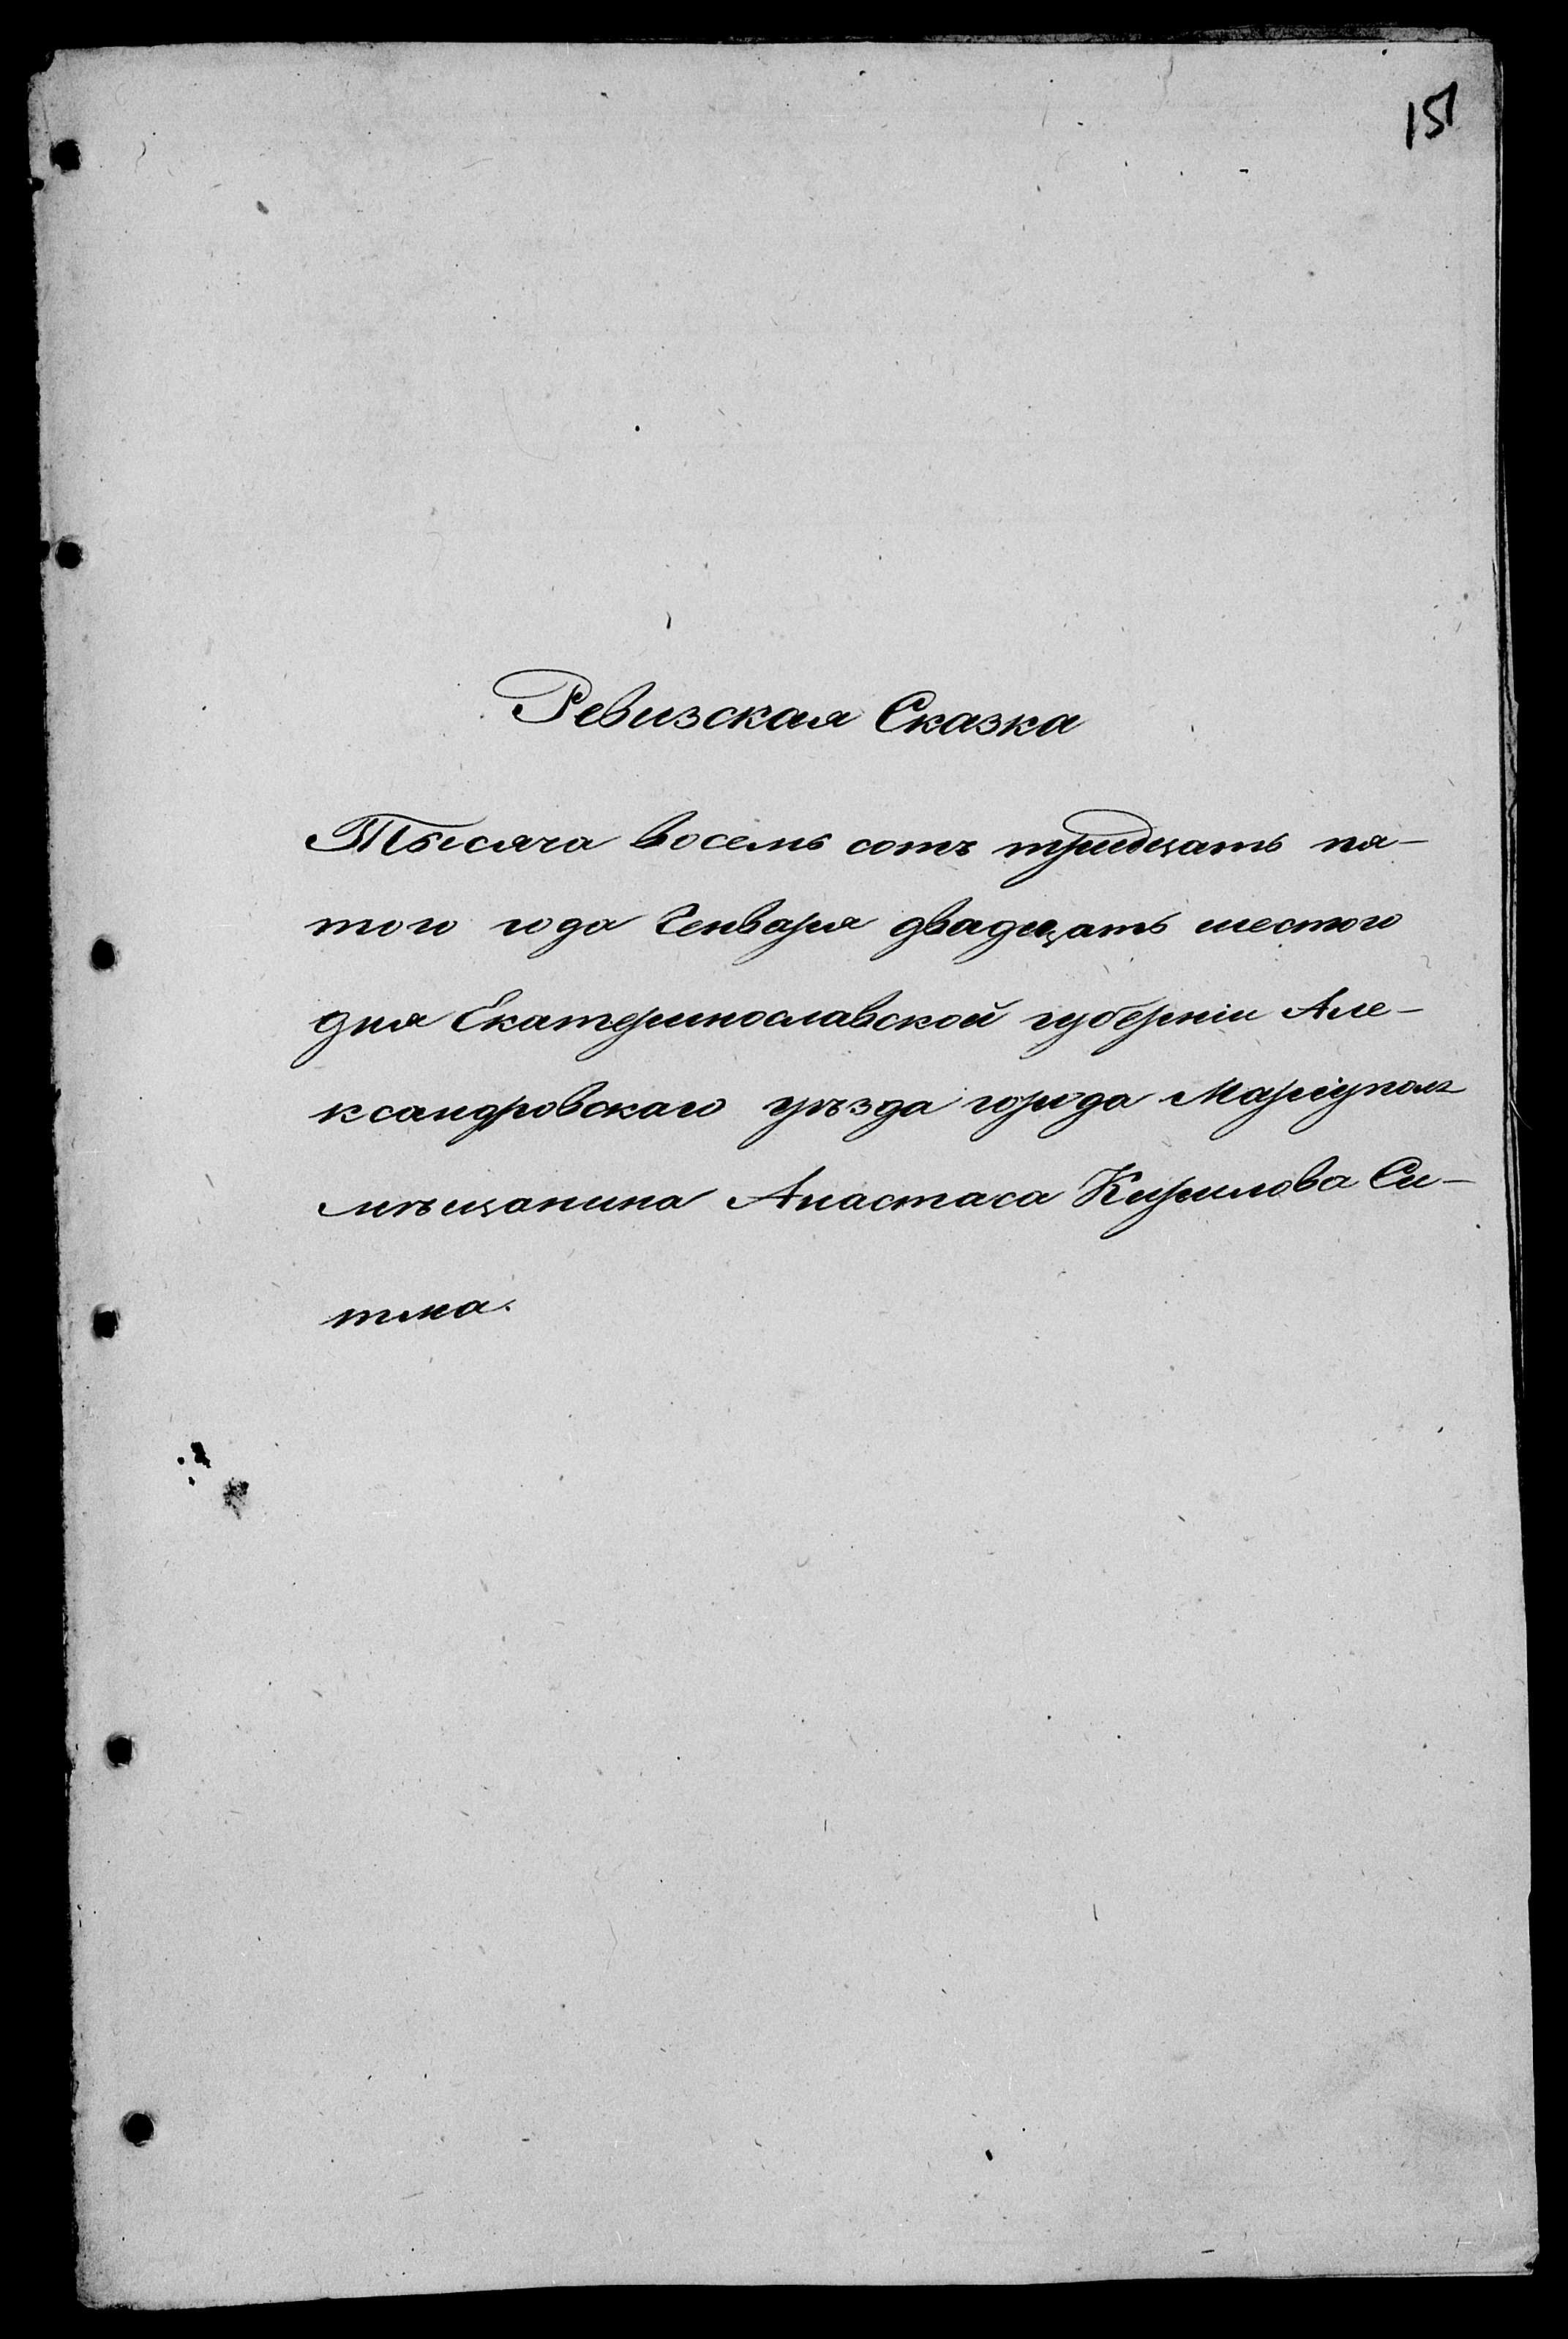 151
Ревизская Сказка
Тысяча восемь сотъ тридцать пя-
того года Генваря двадцать шестого
дня Екатеринославской губерніи Але-
ксандровскаго уѣзда города Маріуполя
мѣщанина Анастаса Кирилова Си-
тма.